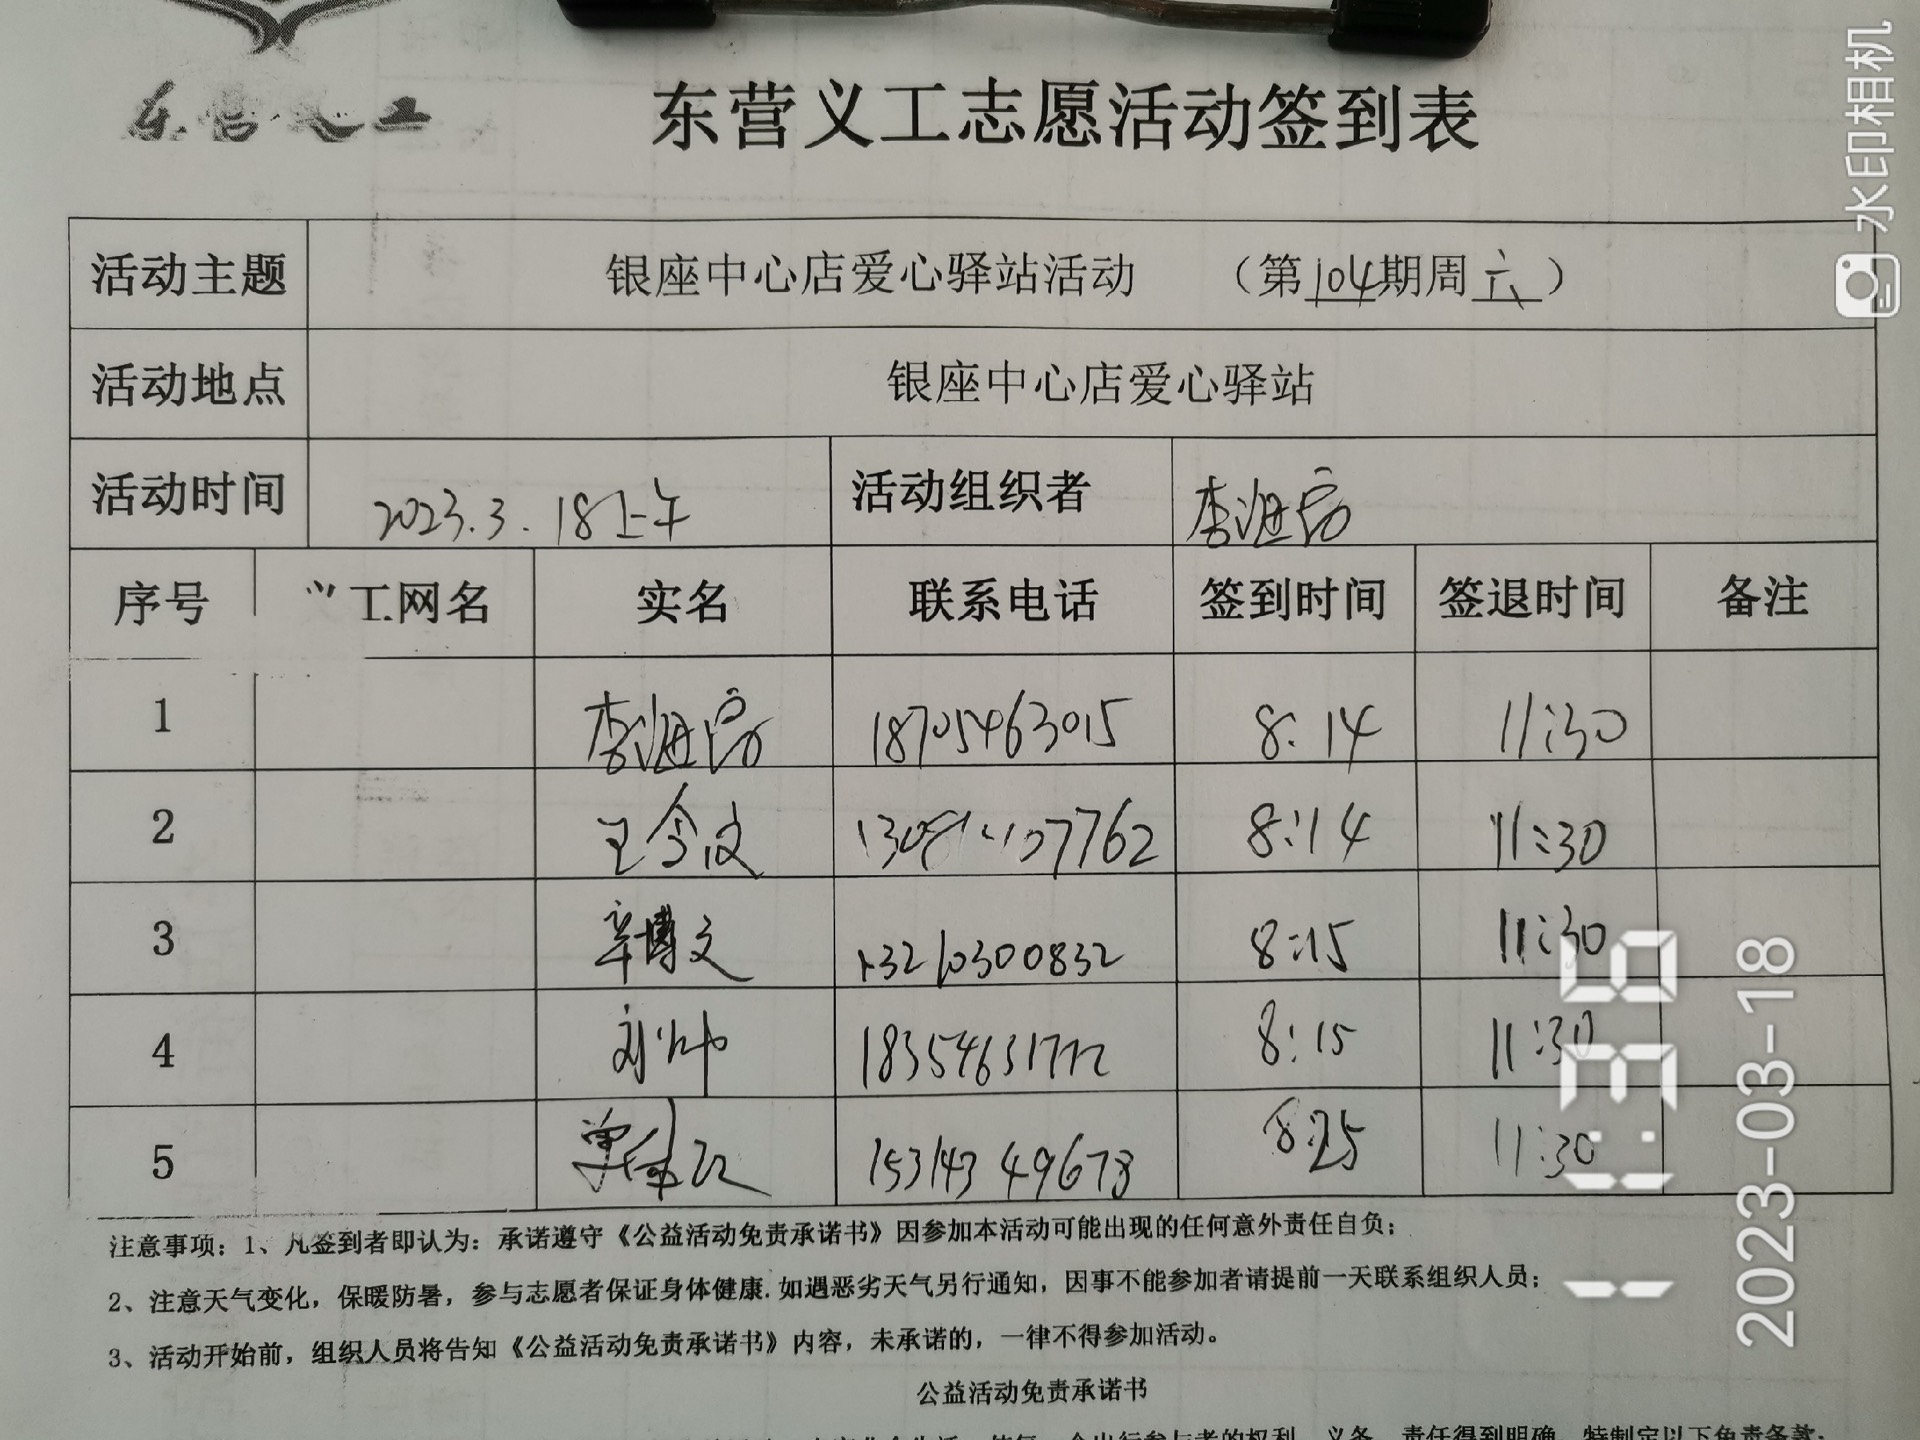 东营义工
东营义工志愿活动签到表
水印相机
活动主题 银座中心店爱心驿站活动 （第104期周六）
活动地点 银座中心店爱心驿站
活动时间 2023.3.18上午 活动组织者 李
序号 义工网名 实名 联系电话 签到时间 签退时间 备注
1 李 18705463015 8:14 11:30
2 王 8:14 11:30
3 辛博文 13210300832 8:15 11:30
4 刘帅 8:15 11:30
5 15314349678 8:25 11:30
11:39
2023-03-18
注意事项：1、凡签到者即认为：承诺遵守《公益活动免责承诺书》因参加本活动可能出现的任何意外责任自负；
2、注意天气变化，保暖防暑，参与志愿者保证身体健康.如遇恶劣天气另行通知，因事不能参加者请提前一天联系组织人员；
3、活动开始前，组织人员将告知《公益活动免责承诺书》内容，未承诺的，一律不得参加活动。
公益活动免责承诺书
参与者的权利、义务、责任得到明确，特制定以下免责条款：